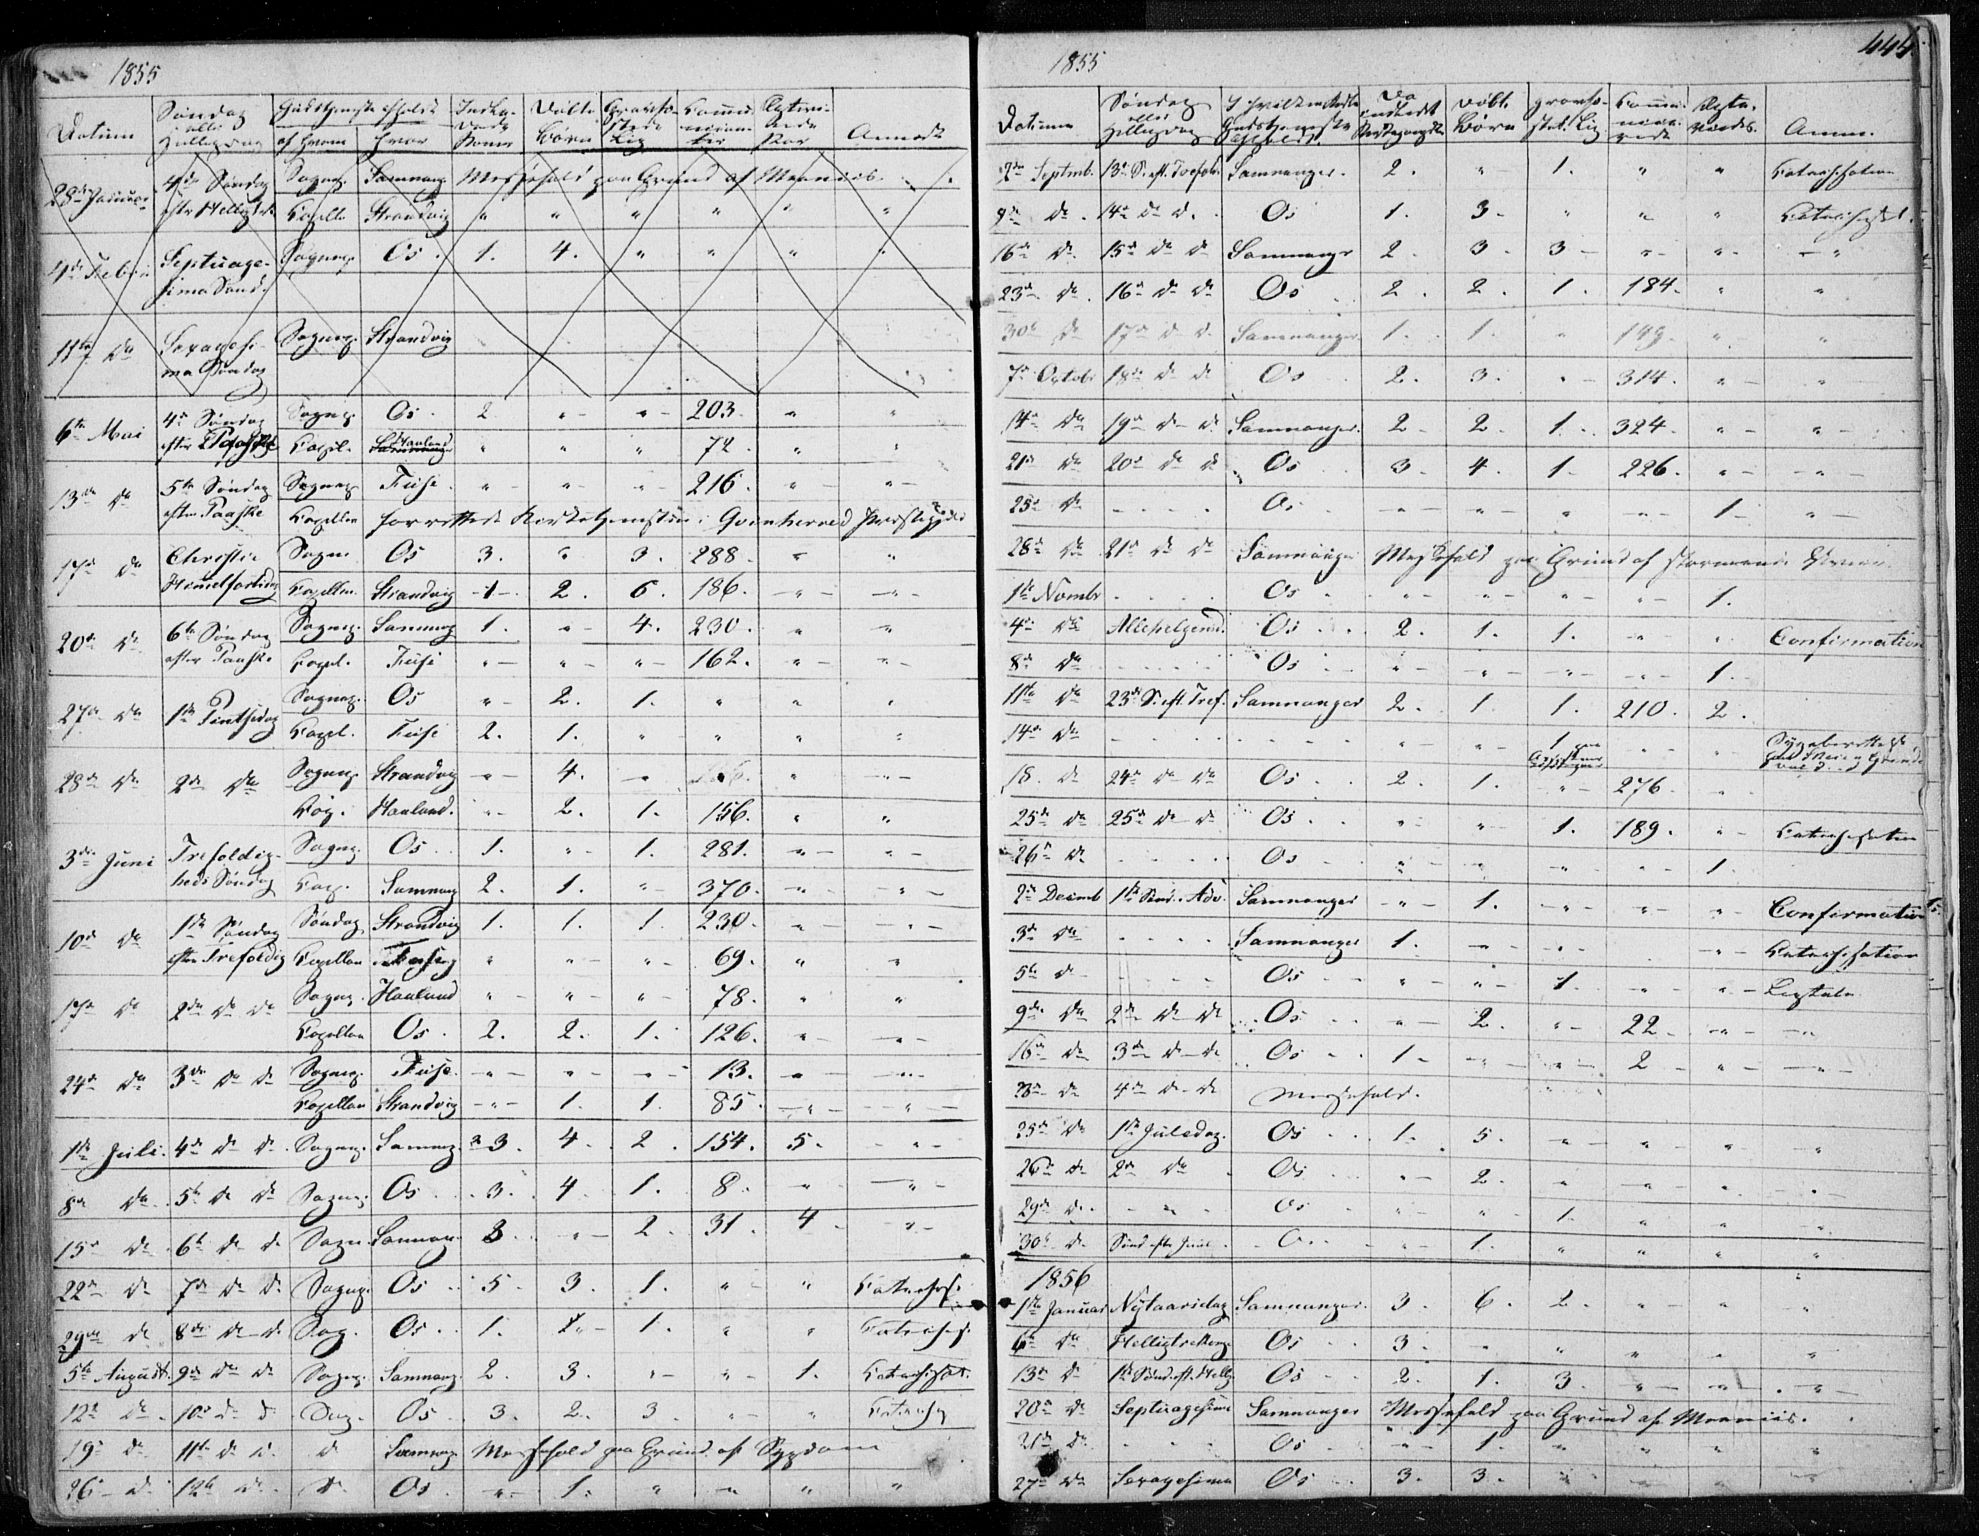 1855
Datum Søndag eller Helligdag Gudstjeneste holdt af hvem hvor Døbte Børn Andet
28de Januar 4de Søndag efter Hellig Sognep. Samnang. Messefald paa Grund af
Capellan Strandvig " " " " " "
4de Febr. Septuagesima Sønd. Sognep. Os. 1. 4. " " " "
11te do Sexagesima Søndag Sognep. Strandvig
6te Mai 4de Søndag efter Paaske Sognep. Os. 2. " " 203. " "
Capel. Haaland " " " 72. " "
13de do 5te Søndag efter Paaske Sognep. Fuse. " " " 216. " "
Capellan forrettede Kirketjenesten i Qvinherred
17de do Christi Himmelfartsdag Sogn. Os 3. " 3. 288. " "
Capellan Strandvig 1. 2. 6. 186. " "
20de do 6te Søndag efter Paaske Sognep. Samnang 1. " 4. 230. " "
Capel. Fuse " " " 162. " "
27de do 1ste Pintsedag Sognep. Os " 2. 1. " " "
Capel. Fuse 2. 1. " " " "
28de do 2den do Sognep. Strandvig " 4. " " "
Cap. Haaland. " 2. 1. 156. " "
3die Juni Trefoldigheds Søndag Sognep. Os. 1. " 1. 281. " "
Cap. Samnang 2. 1. " 370. " "
10de do 1ste Søndag efter Trefoldig Søndag Strandvig 1. 1. 1. 230. " "
Capellan " " " 69. " "
17de do 2den do do Sognep. Haaland " " " 78. " "
Capellan Os. 2. 2. 1. 126. " "
24de do 3die do do Sognep. Fuse. " " " 13. " "
Capellan Strandvig " 1. 1. 85. " "
1ste Juli. 4de do do Sognep. Samnang 3. 4. 2. 154. 5. "
8de do 5te do do Sognep. Os. 3. 4. 1. 8. " "
15de do 6te do do Sogn. Samnang 3 " 2. 31. 4. "
22de do 7de do do Sognep. Os. 5. 3. 1. " " Catechis.
29de do 8de do do Sog. Os. 1. 1. " " Catechis.
5te August. 9de do do Sognep. Samnang. 2. 3. " " 1. Catechisat.
12te do. 10de do do Os. 3. 2. 3. " " Catechis
19de do 11te do do do Samnang. Messefald paa Grund af Sygdom
26de do 12te do do Os. " 1. " " " "
1855
445
Datum Søndag eller Helligdag Døbte Børn Anm.
2den Septmb. 13de S. eft. Trefold. Samnanger. 2. " 1. " " Catechisation
9de do. 14de do do. Os 1. 3. " " " Catechisat.
16de do. 15de do do Samnang 2 3 3 " " "
23de do. 16de do do Os 2. 2. 1. 184. " "
30te do 17de do do Samnanger 1. 1. " 149. " "
7de Octobr 18de do do Os 2. 3. " 314. " "
14de do 19de do do. Samnanger. 2 2. 1. 324. " "
21de do 20de do do Os 3. 4. 1. 226. " "
25de do Os. " " " " 1. "
28de do 21de do do Samnanger Messefald paa Grund af stormende
1ste Novmbr Os. " " " " 1.
4de do Allehelgensd. Os. 2. 1. 1. " " Confirmation
8de do Os " " " " 1.
11te do 23de S. eft. Tref. Samnanger 2. 1. 1. 210. 2.
14de do " " 1 " "
18. do 24de do do Os. 2. 1. " 276. "
25de do 25de do do Os. " " 1. 189. " Catechisation
26de do Os " " " " 1.
2den Decimb 1ste Sønd. i Adv. Samnanger " 1. " " " Confirmation
3die do Samnanger 1. " " " Catechisation
5te do Os " " 1 " " Ligtale
9de do 2den do do Os " 2. " 22 " "
16de do 3die do do Os 1. " " 2 " "
23de do 4de do do Messefald.
25de do 1ste Juledag. Os 1. 5. " " " "
26de do 2den do Os " 2. " " "
29de do. " Os " " 1. " " "
30te do Sønd. efter Juul O. " 1. " " " "
1856
1ste Januar Nytaarsdag Samnanger. 3. 6. 2. " " "
6te do Helligtrekong. Os 3. " " " " "
13de do 1ste Sønd. eft. Hellig Os 2. 1. 3. " " "
20de do Septuagesima Samnanger Messefald paa Grund af
21de do Os " 1. " " " "
27de do Sexagesima Os 3. 3. " " " "